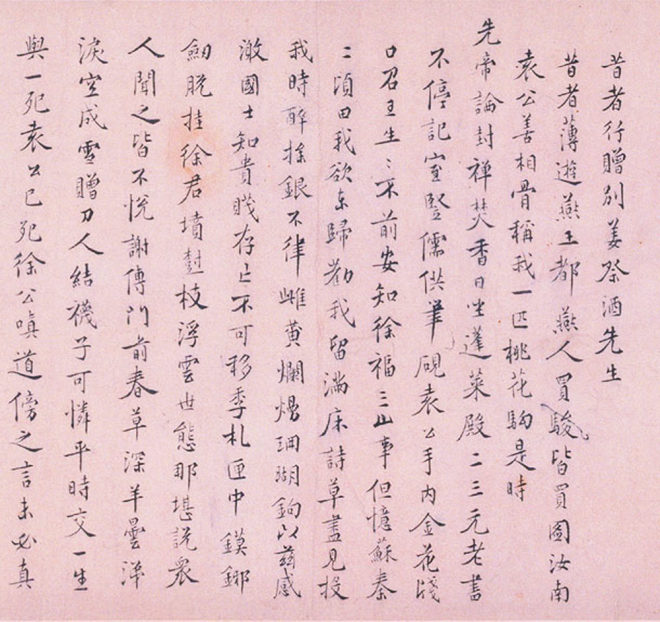 昔者行贈別姜祭酒先生
昔者薄遊燕王都燕人買駿皆買圖汝南
袁公善相骨稱我一匹桃花駒是時
先帝論封禪焚香日坐蓬萊殿二三元老書
不停記室豎儒供筆硯袁公手內金花牋
口召王生〻不前安知徐福三山事但憶蘇秦
二頃田我欲東歸勸我留滿床詩草盡見投
我時醉操銀不律雌黃爛熳珊瑚鉤以茲感
激國士知貴賤存亡不可移季札匣中鏌鋣
劒脫挂徐君墳樹枝浮雲世態那堪說衆
人聞之皆不悅謝傅門前春草深羊曇涕
淚空成雪贈刀人結襪子可憐平時交一生
與一死袁公已死徐公嗔道傍之言未必真